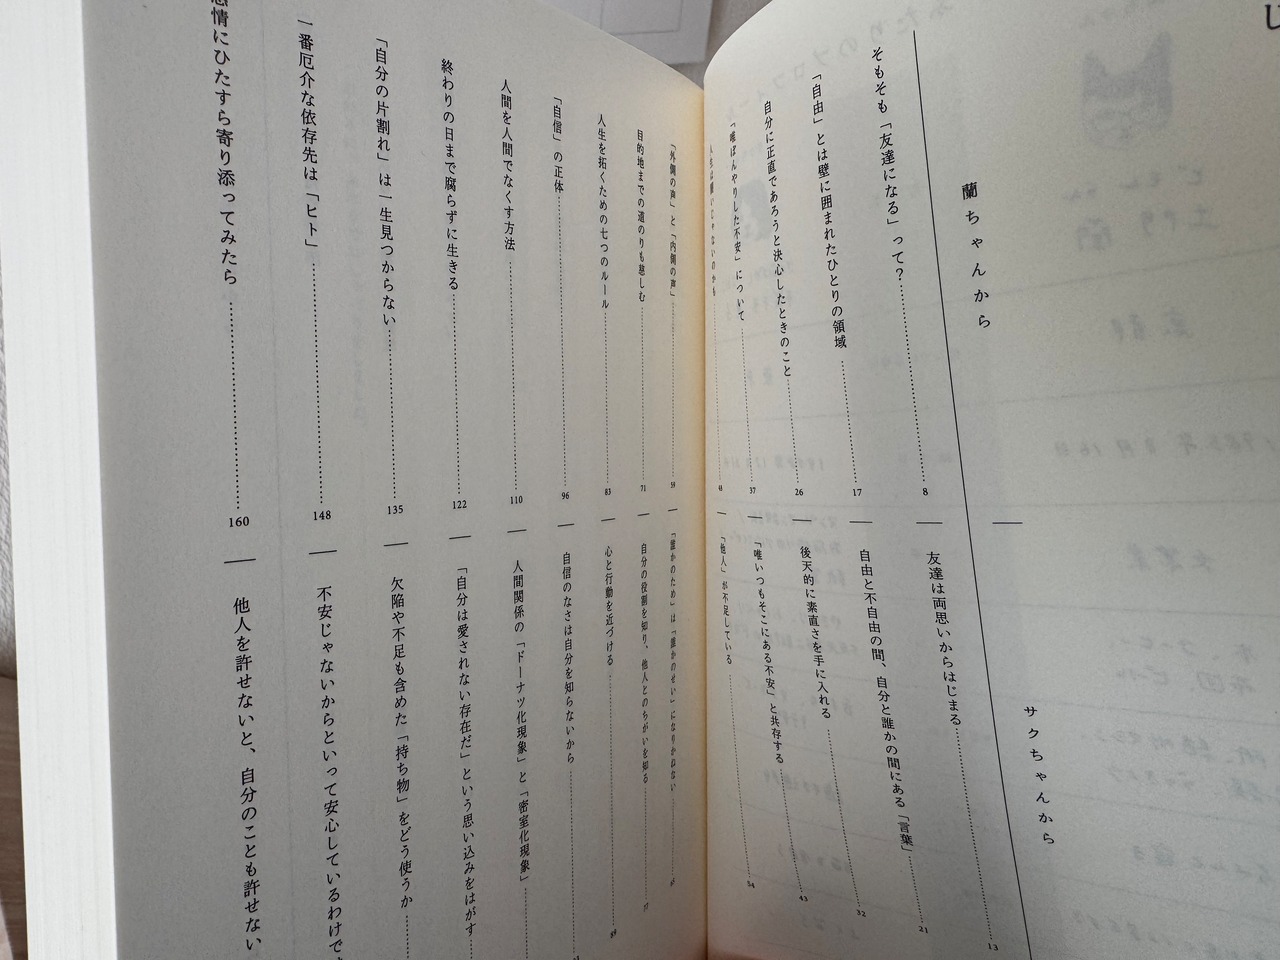 蘭ちゃんから
サクちゃんから
そもそも「友達になる」って？ 8
友達は両思いからはじまる 13
「自由」とは壁に囲まれたひとりの領域 17
自由と不自由の間、自分と誰かの間にある「言葉」 21
自分に正直であろうと決心したときのこと 26
後天的に素直さを手に入れる 32
「唯ぼんやりした不安」について 37
「唯いつもそこにある不安」と共存する 43
人生は闘いじゃないのかも 48
「他人」が不足している 54
「外側の声」と「内側の声」 59
「誰かのため」は「誰かのせい」になりかねない
目的地までの道のりも慈しむ 71
自分の役割を知り、他人とのちがいを知る 77
人生を拓くための七つのルール 83
心と行動を近づける
「自信」の正体 96
自信のなさは自分を知らないから
人間を人間でなくす方法 110
人間関係の「ドーナツ化現象」と「密室化現象」
終わりの日まで腐らずに生きる 122
「自分は愛されない存在だ」という思い込みをはがす
「自分の片割れ」は一生見つからない 135
欠陥や不足も含めた「持ち物」をどう使うか
一番厄介な依存先は「ヒト」 148
不安じゃないからといって安心しているわけで
感情にひたすら寄り添ってみたら 160
他人を許せないと、自分のことも許せない